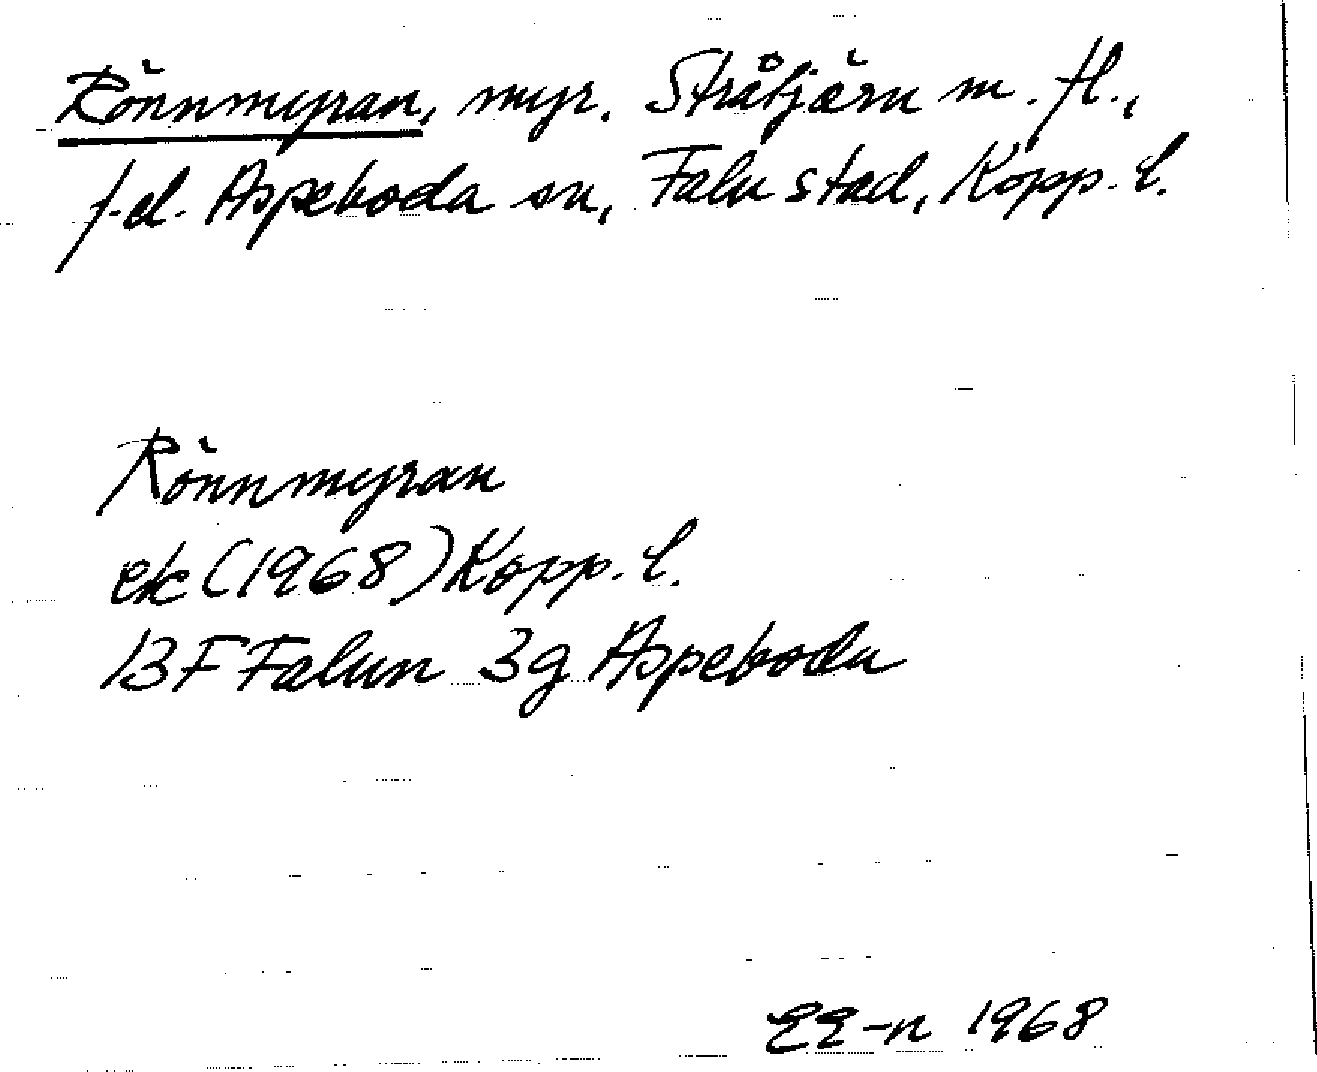 Rönnmyran, myr. Stråtjärn m. fl.,
f.d. Aspeboda sn, Falu stad, Kopp. l.
Rönnmyran
ek (1968) Kopp. l.
13F Falun 3g Aspeboda
EE-n 1968